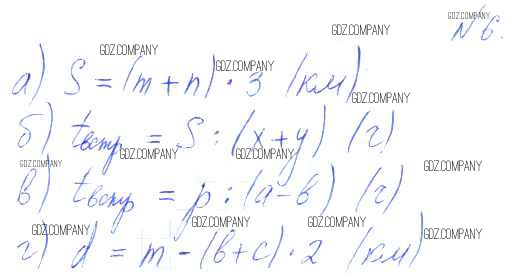 №6.
GDZ.COMPANY
GDZ.COMPANY
GDZ.COMPANY
а) S = (m + n) · 3 (км)
GDZ.COMPANY
GDZ.COMPANY
б) tвстр = S : (x + y) (ч)
GDZ.COMPANY
GDZ.COMPANY
GDZ.COMPANY
GDZ.COMPANY
в) tвстр = p : (a - в) (ч)
GDZ.COMPANY
GDZ.COMPANY
GDZ.COMPANY
GDZ.COMPANY
г) d = m - (в + c) · 2 (км)